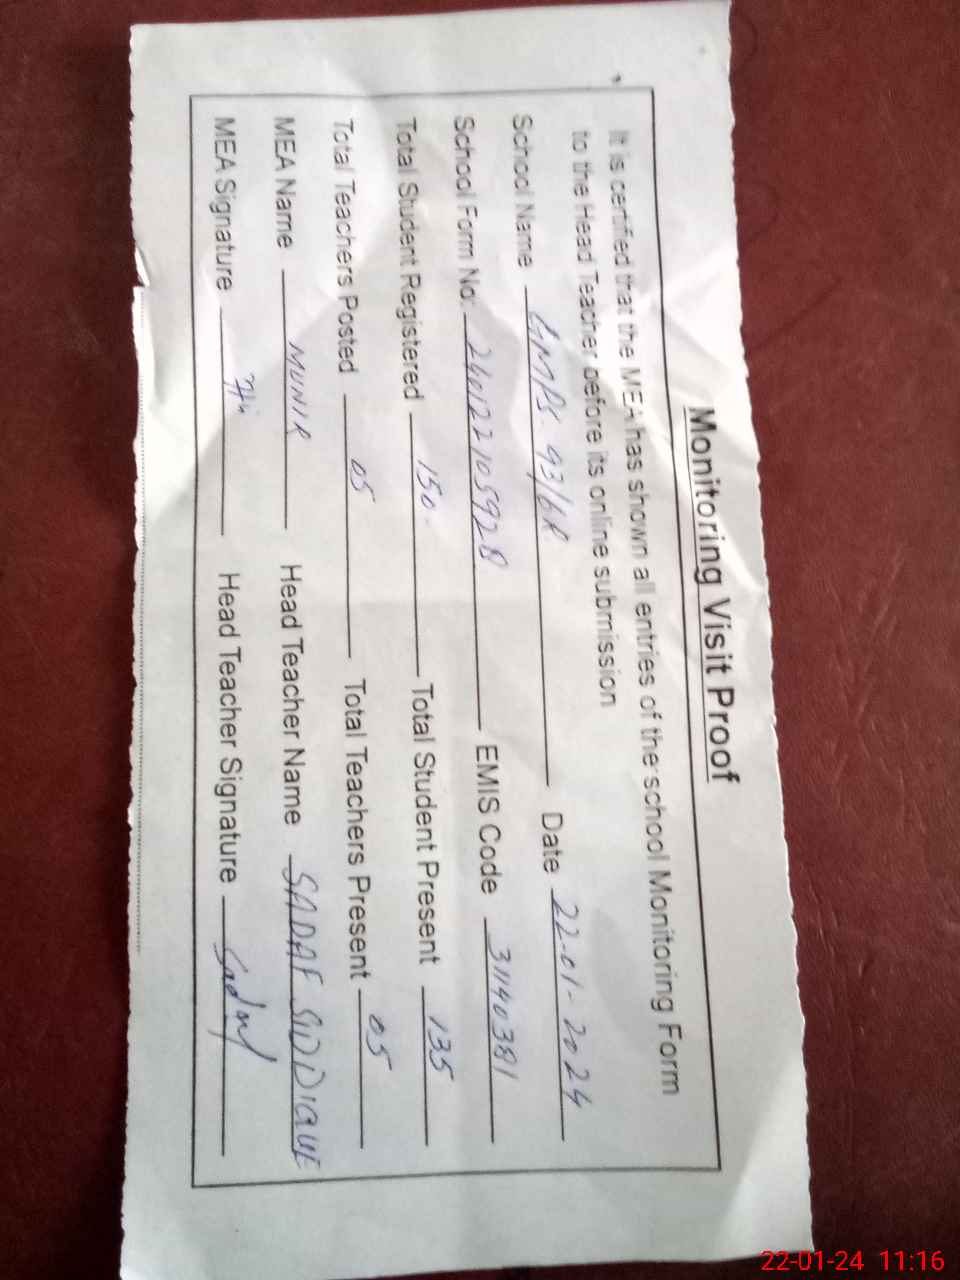 Monitoring Visit Proof
It is certified that the MEA has shown all entries of the school Monitoring Form
to the Head Teacher before its online submission
School Name GMPS-93/6R Date 22-01-2024
School Form No: 240122105928 EMIS Code 31140381
Total Student Registered 150- Total Student Present 135
Total Teachers Posted 05 Total Teachers Present 05
MEA Name MUNIR Head Teacher Name SADAF SIDDIQUE
MEA Signature Head Teacher Signature
22-01-24 11:16